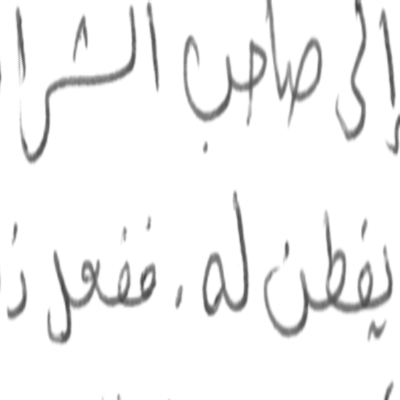 إلى صاحب الشرا
يفطن له. ففعل ذ